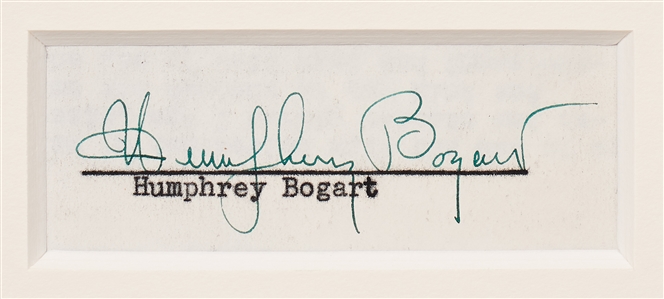 Humphrey Bogart
Humphrey Bogart